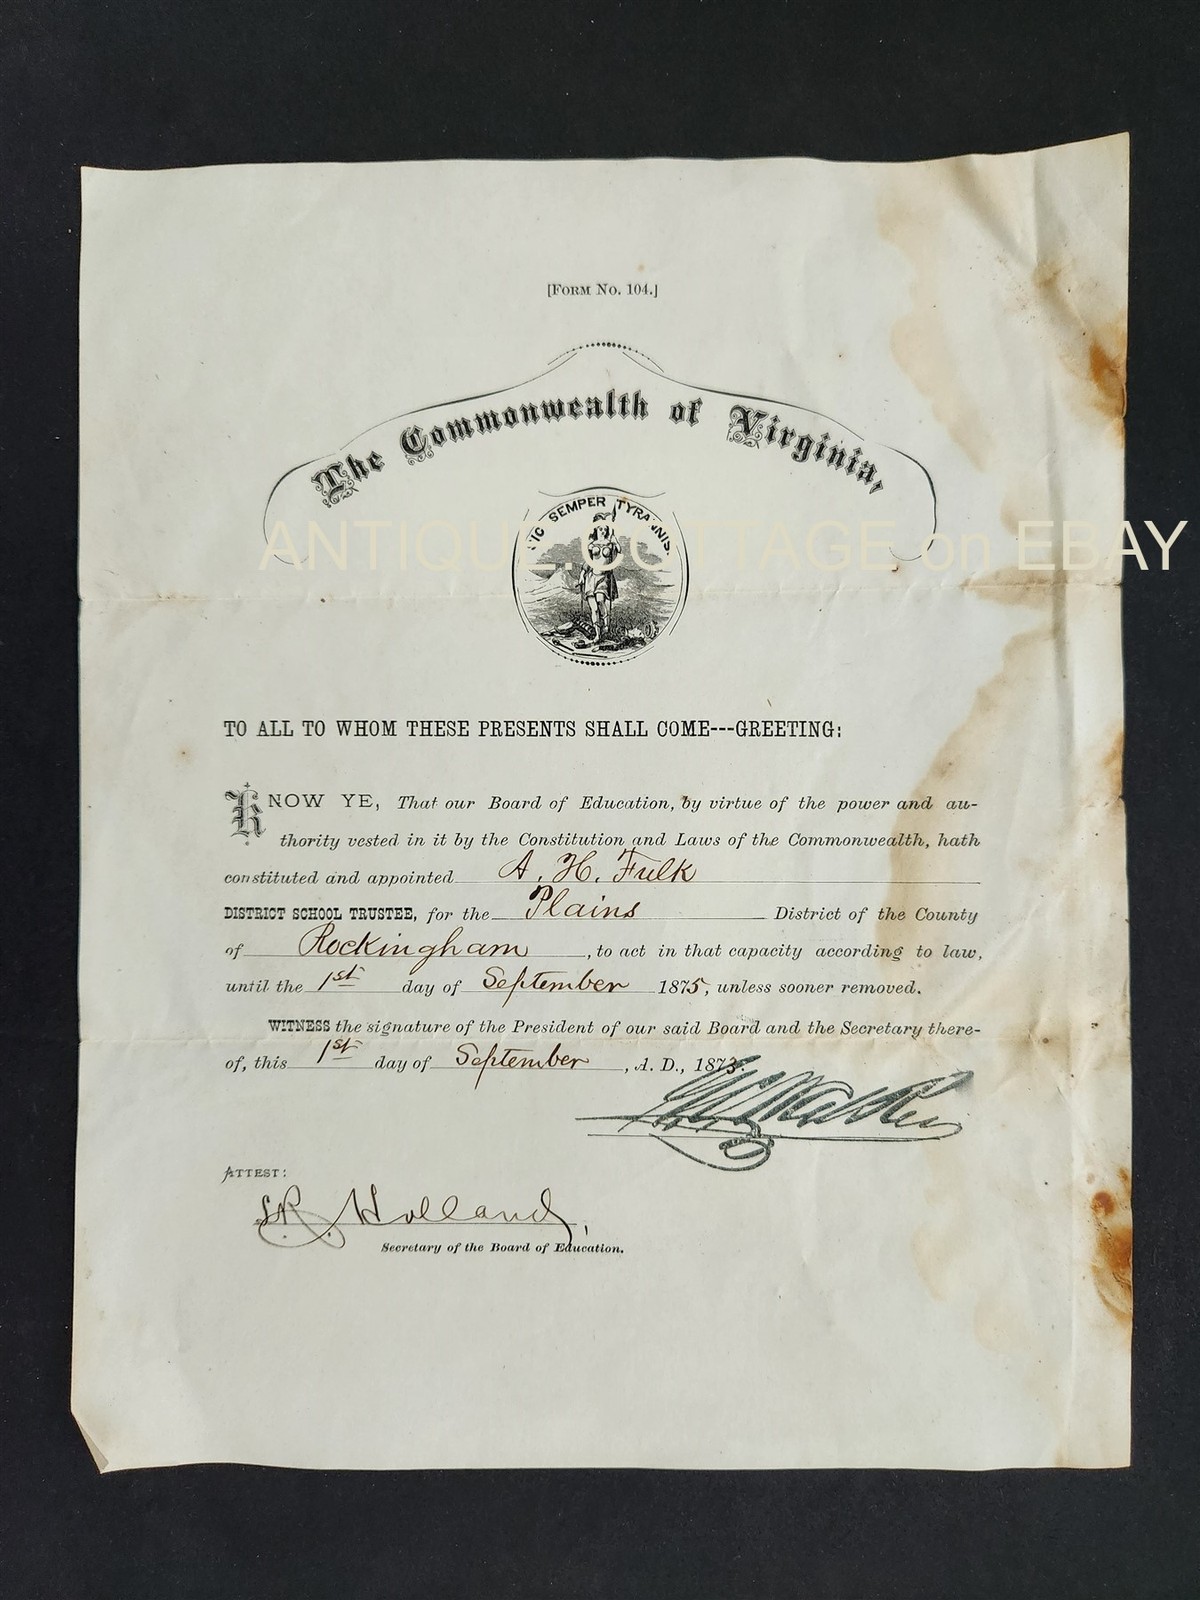 [FORM NO. 104.]
The Commonwealth of Virginia,
SIC SEMPER TYRANNIS.
ANTIQUE.COTTAGE on EBAY
TO ALL TO WHOM THESE PRESENTS SHALL COME---GREETING:
KNOW YE, That our Board of Education, by virtue of the power and au-
thority vested in it by the Constitution and Laws of the Commonwealth, hath
constituted and appointed A. H. Fulk
DISTRICT SCHOOL TRUSTEE, for the Plains District of the County
of Rockingham, to act in that capacity according to law,
until the 1st day of September 1875, unless sooner removed.
WITNESS the signature of the President of our said Board and the Secretary there-
of, this 1st day of September, A. D., 1873.
Walker
ATTEST:
S.R. Holland,
Secretary of the Board of Education.